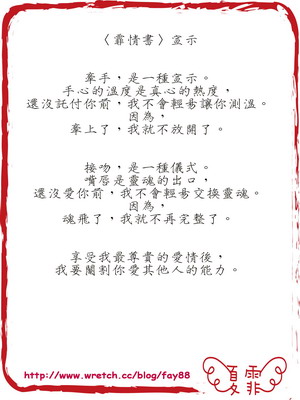 〈霏情書〉宣示
牽手，是一種宣示。
手心的溫度是真心的熱度，
還沒託付你前，我不會輕易讓你測溫。
因為，
牽上了，我就不放開了。
接吻，是一種儀式。
嘴唇是靈魂的出口，
還沒愛你前，我不會輕易交換靈魂。
因為，
魂飛了，我就不再完整了。
享受我最尊貴的愛情後，
我要閹割你愛其他人的能力。
http://www.wretch.cc/blog/fay88
夏霏